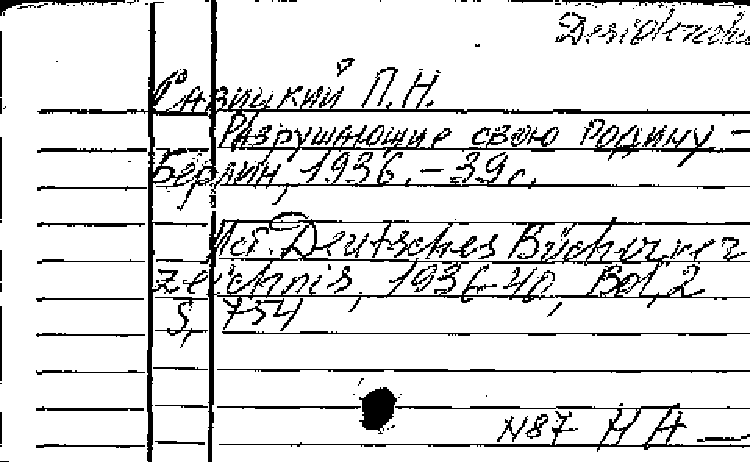 Desiderata
Савицкий П.Н.
Разрушающие свою Родину —
Берлин, 1936.-39 г.
Ист. Deutsches Bücherver
zeichnis, 1936-40, Bd, 2
S, 754
N87 НА —